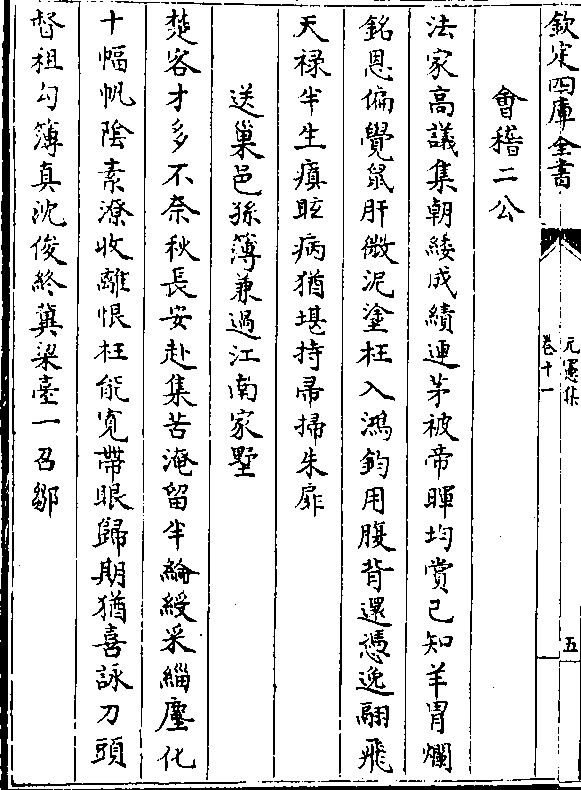 欽定四庫全書
元憲集
卷十一
五
會稽二公
法家高議集朝緌成績連茅被帝暉均賞已知羊胃爛
銘恩偏覺鼠肝微泥塗枉入鴻鈞用腹背還憑逸翮飛
天祿半生瘨眩病猶堪持帚掃朱扉
送巢邑孫簿兼過江南家墅
楚客才多不奈秋長安赴集苦淹留半綸綬采緇塵化
十幅帆陰素潦收離恨枉能寛帶眼歸期猶喜詠刀頭
督租勾簿真沈俊終冀梁臺一召鄒